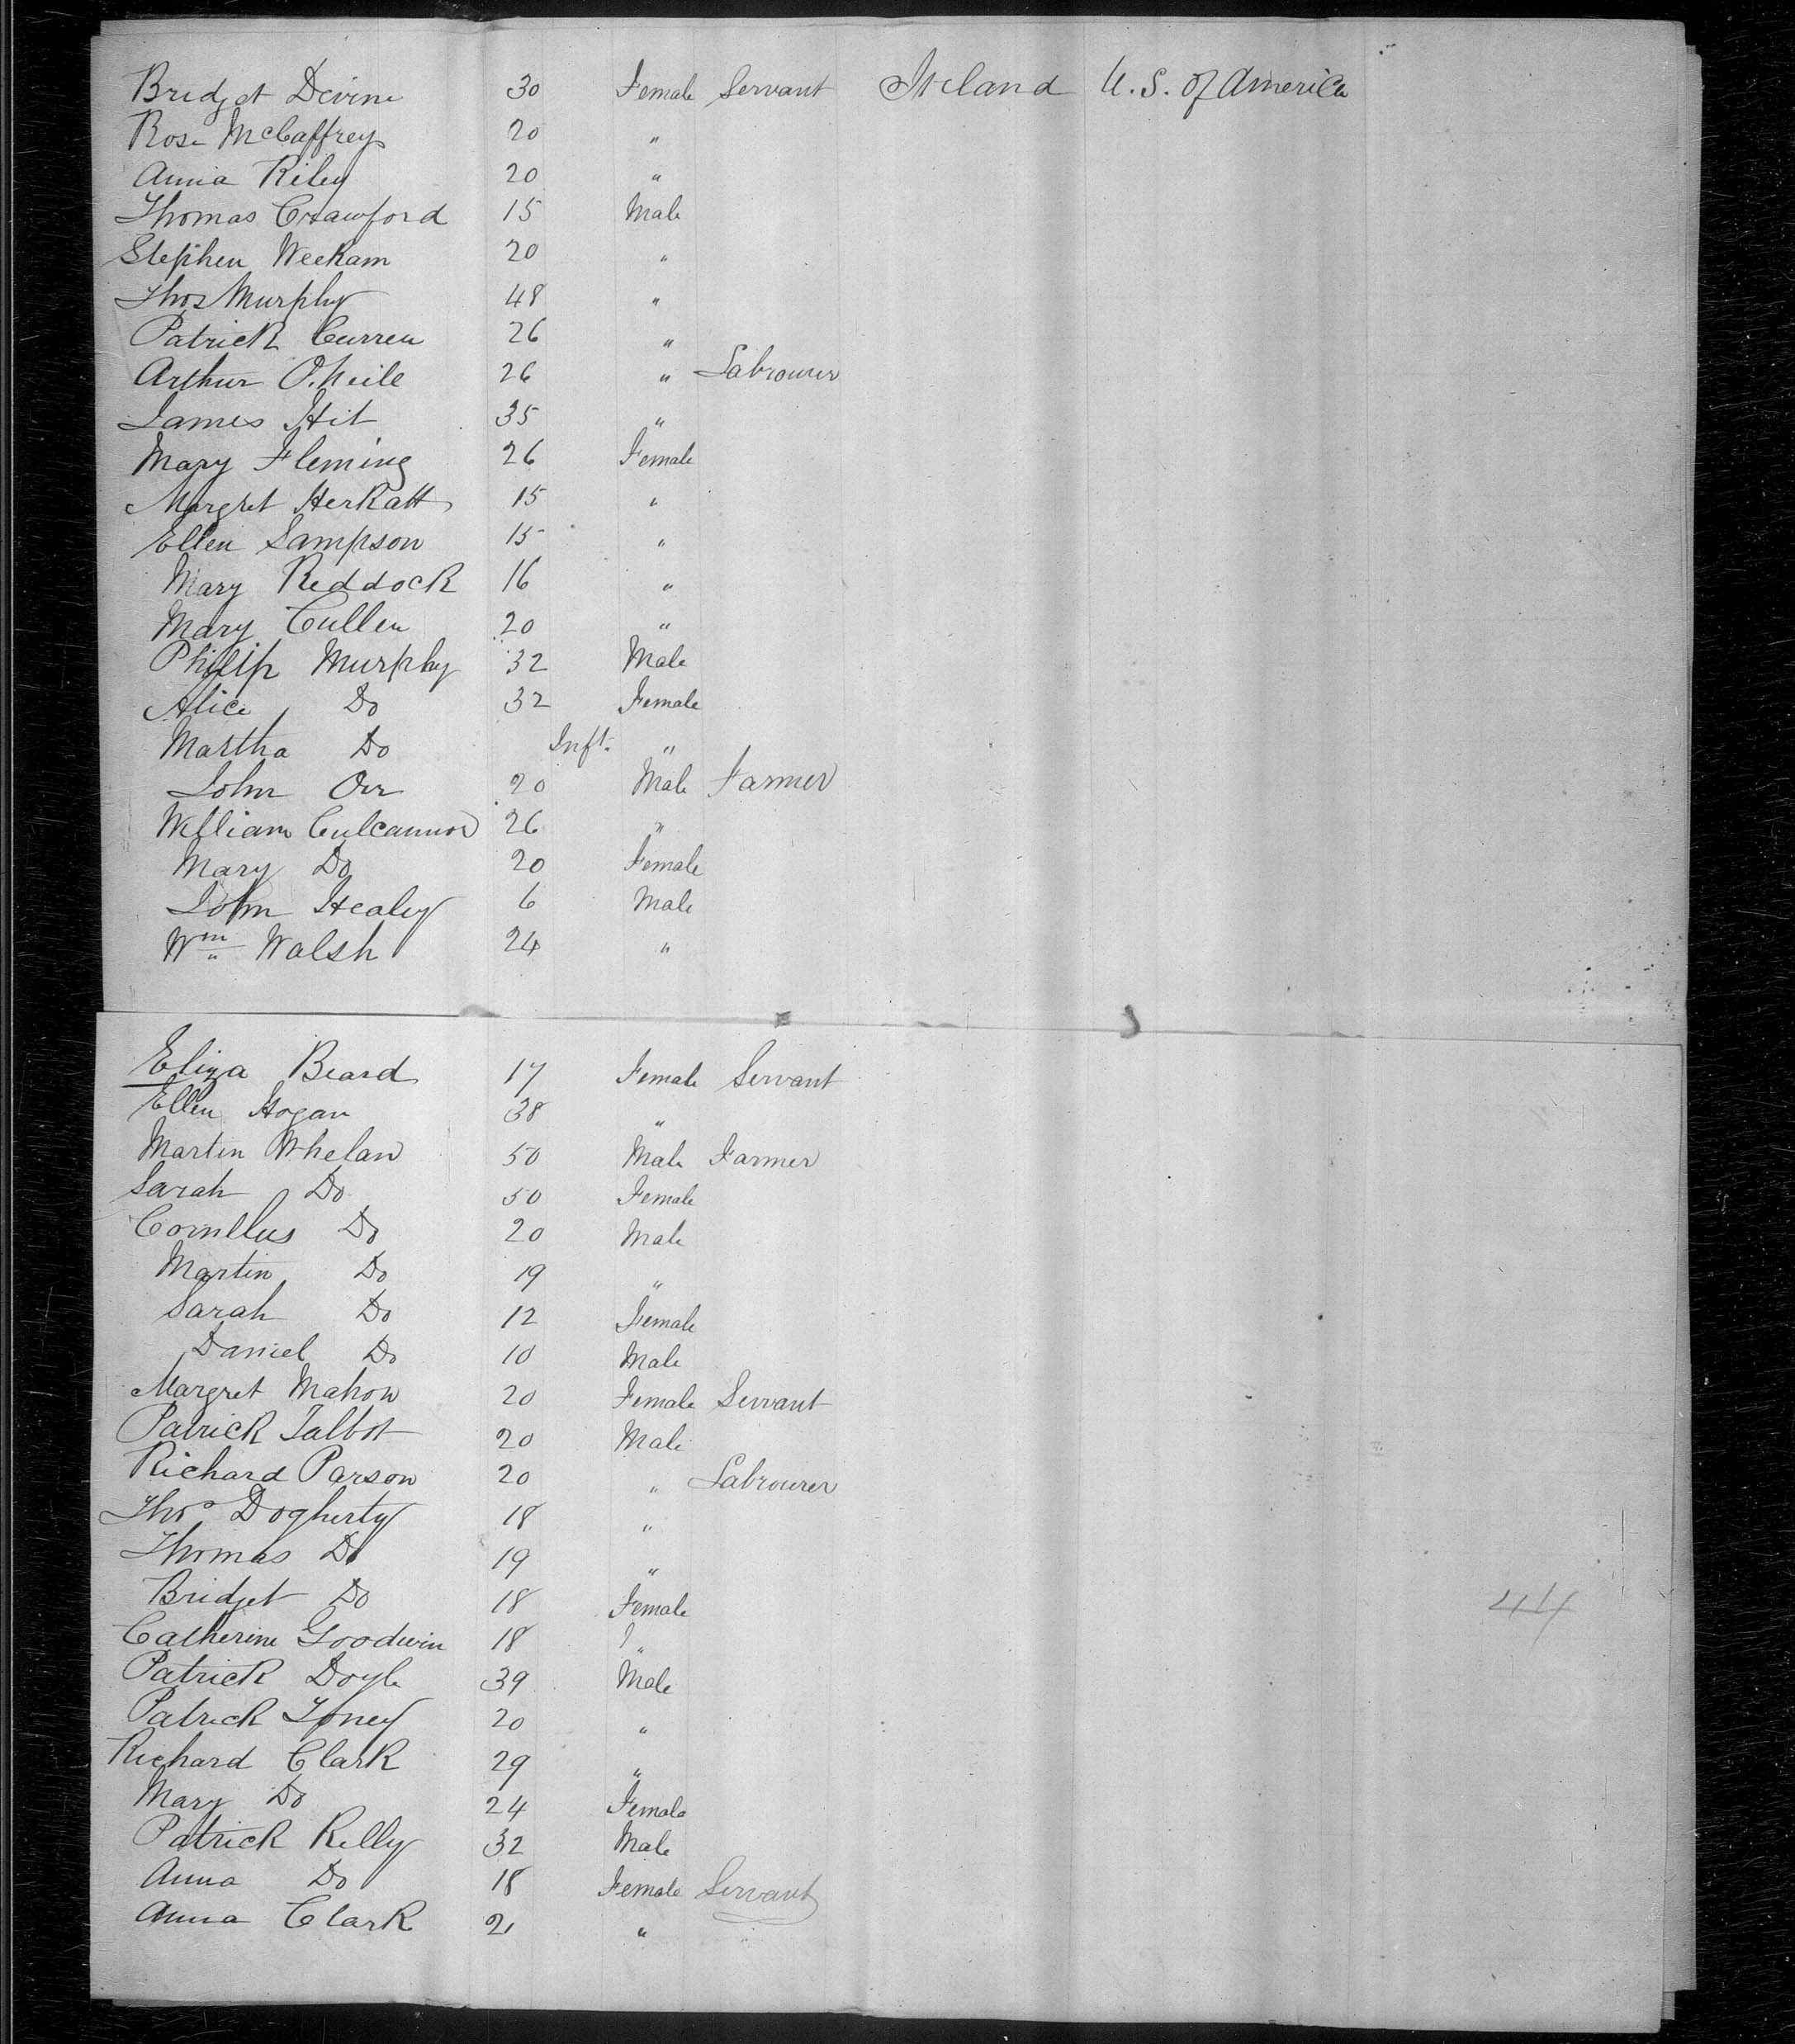 Bridget Devine 30 Female Servant Ireland U.S. of America
Rose McCaffrey 20 "
Anna Riley 20 "
Thomas Crawford 15 Male
Stephen Weekam 20 "
Thos Murphy 48 "
Patrick Curren 26 "
Arthur O.Neile 26 " Labrourer
James Hit 35 "
Mary Fleming 26 Female
Margret Herkatt 15 "
Ellen Sampson 15 "
Mary Reddock 16 "
Mary Cullen 20 "
Philip Murphy 32 Male
Alice Do 32 Female
Martha Do Inft. "
John Orr 20 Male Farmer
William Culcannon 26 "
Mary Do 20 Female
John Healey 6 Male
Wm Walsh 24 "
Eliza Beard 17 Female Servant
Ellen Hogan 38 "
Martin Whelan 50 Male Farmer
Sarah Do 50 Female
Cornelius Do 20 Male
Martin Do 19 "
Sarah Do 12 Female
Daniel Do 10 Male
Margret Mahon 20 Female Servant
Patrick Talbot 20 Male
Richard Parson 20 " Labrourer
Thos Dogherty 18 "
Thomas Do 19 "
Bridget Do 18 Female
44
Catherine Goodwin 18 "
Patrick Doyle 39 Male
Patrick 20 "
Richard Clark 29 "
Mary Do 24 Female
Patrick Kelly 32 Male
Anna Do 18 Female Servant
Anna Clark 21 "